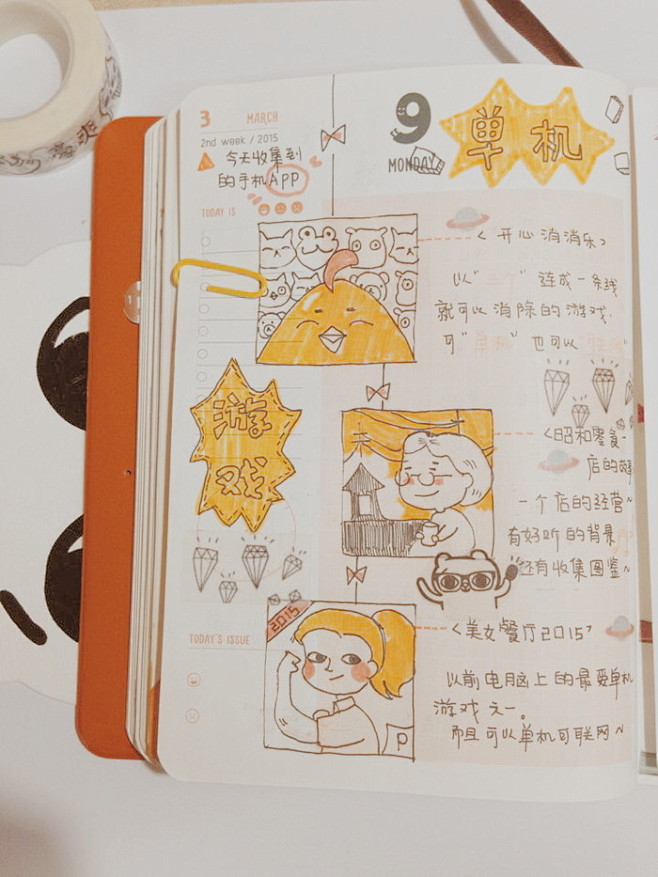 3 MARCH
2nd week / 2015
今天收集到
的手机APP
TODAY IS
9
MONDAY
单机
<开心消消乐>
以"三个"连成一条线
就可以消除的游戏.
可"单机"也可以"联网"
游
戏
<昭和零食一
店的故事
一个店的经营~
有好听的背景
还有收集图鉴~
2015
P
TODAY'S ISSUE
<美女餐厅2015>
以前电脑上的最爱单机
游戏之一。
而且可以单机可联网~